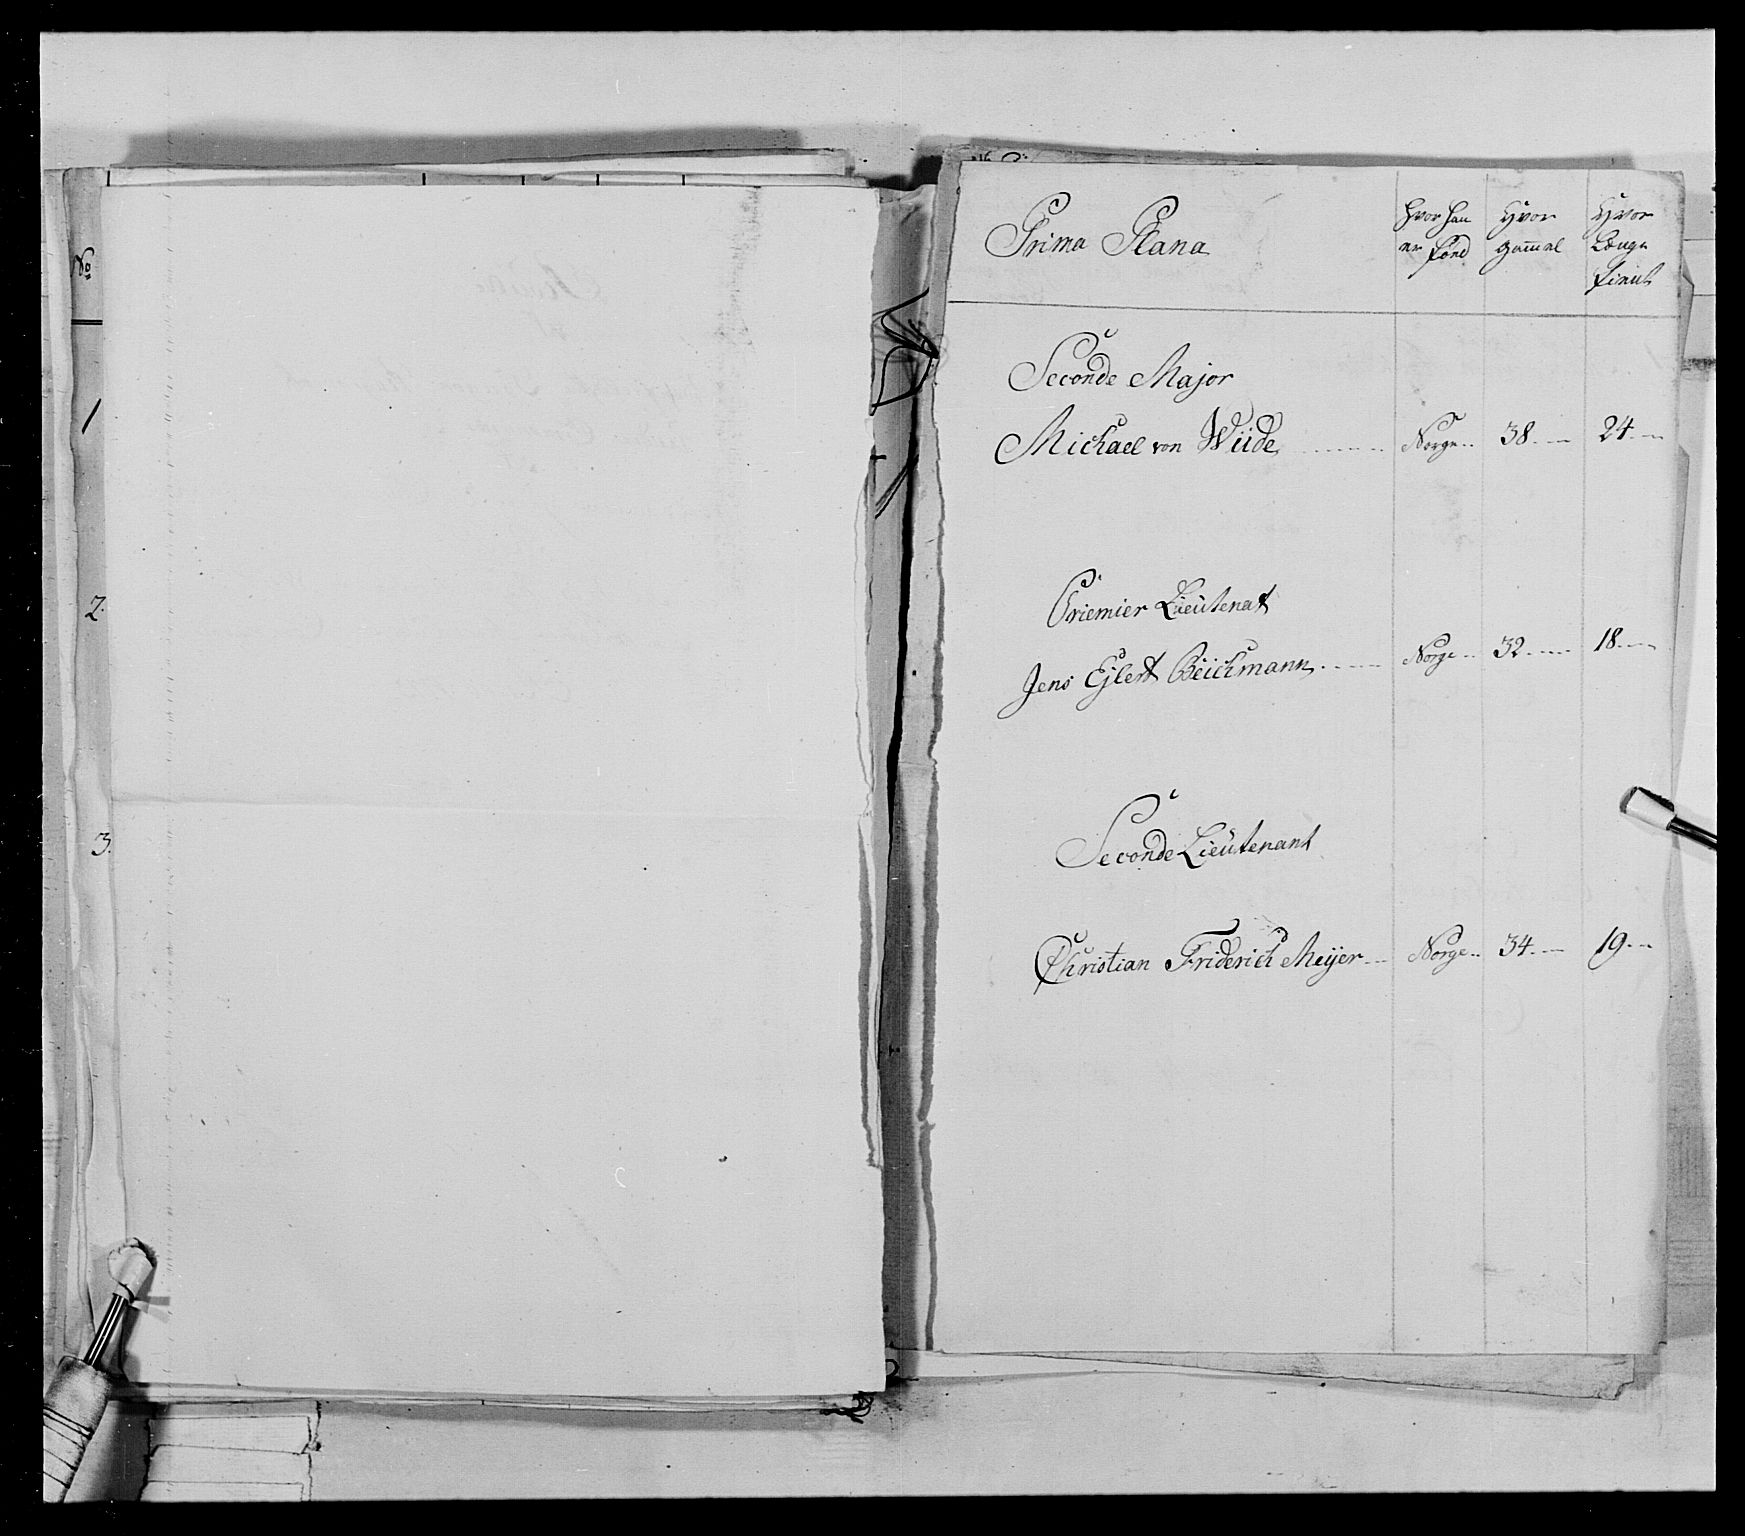 No
1
2.
3.
Prima Plana
Hvor han
er fönd
Hvor
gam̄el
Hvor
Længe
tient
Seconde Major
Michael von Wüde Norge 38 24
Priemier Lieütenat
Jens Ejlert Beichmann Norge 32 18
Seconde Lieütenant
Christian Friderich Meijer Norge 34 19